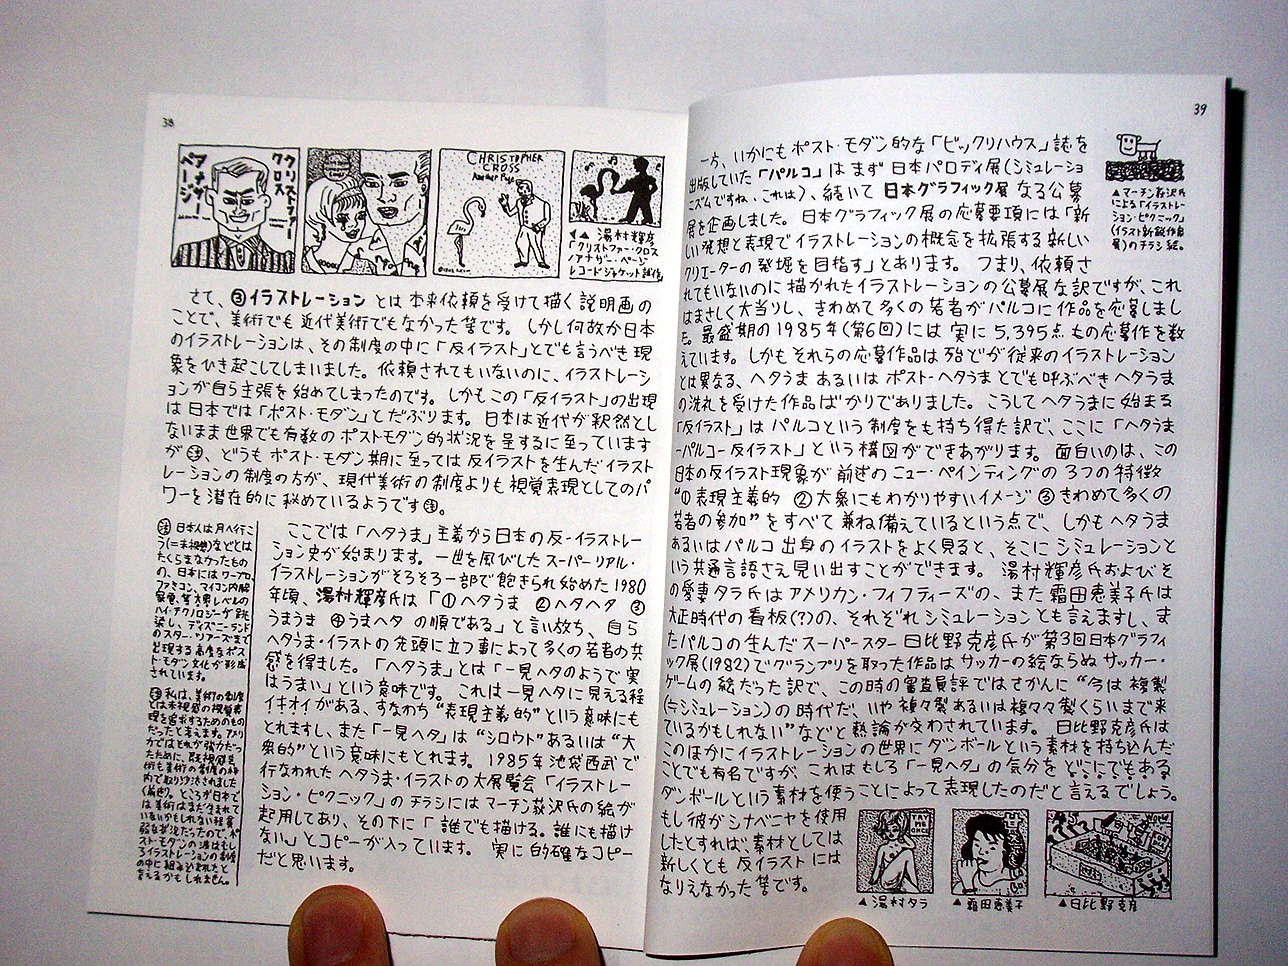 38
クリストファー
クロス
アナザー
ページ
CHRISTOPHER
CROSS
Another Page
◀▲ 湯村輝彦
「クリストファー・クロス
/アナザー・ページ
レコードジャケット試作
さて、③イラストレーション とは本来依頼を受けて描く説明画の
ことで、美術でも近代美術でもなかった筈です。しかし何故か日本
のイラストレーションは、その制度の中に「反イラスト」とでも言うべき現
象をひき起こしてしまいました。依頼されてもいないのに、イラストレーシ
ョンが自ら主張を始めてしまったのです。しかもこの「反イラスト」の出現
は日本では「ポスト・モダン」とだぶります。日本は近代が釈然とし
ないまま世界でも有数のポストモダン的状況を呈するに至っています
が㊟、どうもポスト・モダン期に至っては反イラストを生んだイラスト
レーションの制度の方が、現代美術の制度よりも視覚表現としてのパ
ワーを潜在的に秘めているようです㊟。
㊟ 日本人は月へ行こ
う(=未視感)などとは
たくらまなかったもの
の、日本にはワープロ、
ファミコン、マイコン内蔵
家電、等世界レベルの
ハイ・テクノロジーが跳
梁し、ディズニーランド
のスター・ツアーズまで
出現する高度なポス
ト・モダン文化が形成
されています。
㊟ 私は、美術の制度
とは未視感の視覚表
現を追求するためのもの
だったと考えます。アメリ
カではそれが強力だっ
たために、既視感見
術も美術の制度の枠
内で取り沙汰されました
(偏向)。ところが日本で
は美術はまだ生まれて
いないかもしれない程貧
弱な状況だったので、ポ
スト・モダンの波はむし
ろイラストレーションの制度
の中に組み込まれたと
言えるかもしれません。
ここでは「ヘタうま」主義から日本の反-イラストレー
ション史が始まります。一世を風びしたスーパーリアル・
イラストレーションがそろそろ一部で飽きられ始めた1980
年頃、湯村輝彦氏は「①ヘタうま ②ヘタヘタ ③
うまうま ④うまヘタ の順である」と言い放ち、自ら
ヘタうま・イラストの先頭に立つ事によって多くの若者の共
感を得ました。「ヘタうま」とは「一見ヘタのようで実
はうまい」という意味です。これは一見ヘタに見える程
イキオイがある、すなわち“表現主義的”という意味にも
とれますし、また「一見ヘタ」は“シロウト”あるいは“大
衆的”という意味にもとれます。1985年池袋西武で
行なわれたヘタうま・イラストの大展覧会「イラストレー
ション・ピクニック」のチラシにはマーチン荻沢氏の絵が
起用してあり、その下に「誰でも描ける。誰にも描け
ない。」とコピーが入っています。実に的確なコピー
だと思います。
39
一方、いかにもポスト・モダン的な「ビックリハウス」誌を
出版していた「パルコ」はまず日本パロディ展(シミュレーショ
ニズムですね、これは)、続いて日本グラフィック展なる公募
展を企画しました。日本グラフィック展の応募要項には「新
しい発想と表現でイラストレーションの概念を拡張する新しい
クリエーターの発掘を目指す」とあります。つまり、依頼さ
れてもいないのに描かれたイラストレーションの公募展な訳ですが、これ
はまさしく大当りし、きわめて多くの若者がパルコに作品を応募しまし
た。最盛期の1985年(第6回)には実に5,395点もの応募作を数
えています。しかもそれらの応募作品は殆どが従来のイラストレーション
とは異なる、ヘタうまあるいはポスト-ヘタうまとでも呼ぶべきヘタうま
の洗礼を受けた作品ばかりでありました。こうしてヘタうまに始まる
「反イラスト」はパルコという制度をも持ち得た訳で、ここに「ヘタうま
-パルコ-反イラスト」という構図ができあがります。面白いのは、この
日本の反イラスト現象が前述のニュー・ペインティングの3つの特徴
“①表現主義的 ②大衆にもわかりやすいイメージ ③きわめて多くの
若者の参加”をすべて兼ね備えているという点で、しかもヘタうま
あるいはパルコ出身のイラストをよく見ると、そこにシミュレーションと
いう共通言語さえ見い出すことができます。湯村輝彦氏およびそ
の愛妻タラ氏はアメリカン・フィフティーズの、また霜田恵美子氏は
大正時代の看板(?)の、それぞれシミュレーションとも言えますし、ま
たパルコの生んだスーパースター日比野克彦氏が第3回日本グラフィ
ック展(1982)でグランプリを取った作品はサッカーの絵ならぬサッカー・
ゲームの絵だった訳で、この時の審査員評ではさかんに“今は複製
(≒シミュレーション)の時代だ、いや複々製あるいは複々々製くらいまで来
ているかもしれない”などと熱論が交わされています。日比野克彦氏は
このほかにイラストレーションの世界にダンボールという素材を持ち込んだ
ことでも有名ですが、これはむしろ「一見ヘタ」の気分をどこにでもある
ダンボールという素材を使うことによって表現したのだと言えるでしょう。
もし彼がシナベニヤを使用
したとすれば、素材としては
新しくとも反イラストには
なりえなかった筈です。
▲マーチン荻沢氏
による「イラストレー
ション・ピクニック」
(イラスト新鋭作家
展)のチラシ絵。
TRY
ME
ONCE
▲湯村タラ
▲霜田恵美子
▲日比野克彦